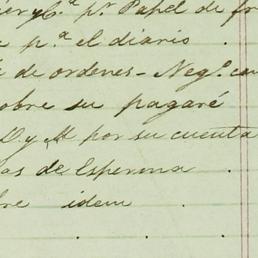 y Cª. pr. Papel de
pª el diario
de ordenes - Negº.
sobre su pagaré
D. y M por su cuenta
as de Esperma
idem